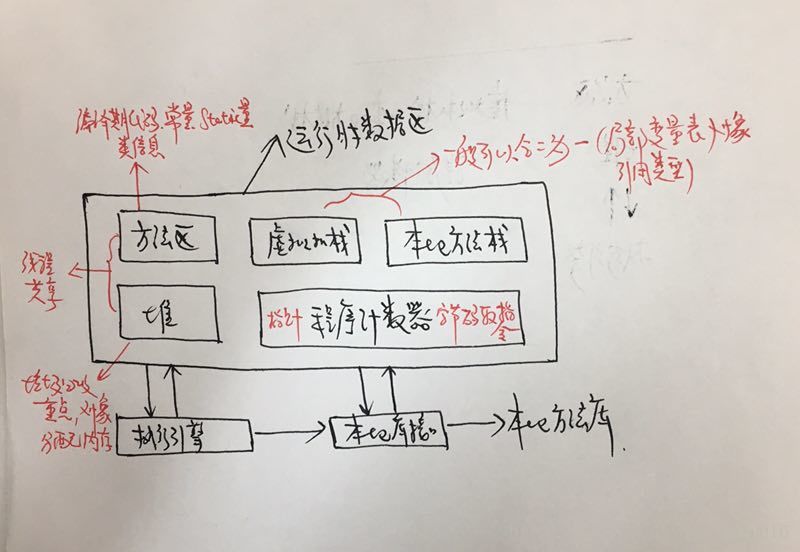 编译期代码.常量.Static变量
类信息
运行时数据区
一般可以合二为一(局部变量表,对象
引用类型)
方法区
虚拟机栈
本地方法栈
线程
共享
堆
指针 程序计数器 字节码取指令
重点,对象
分配内存
执行引擎
本地库接口
本地方法库